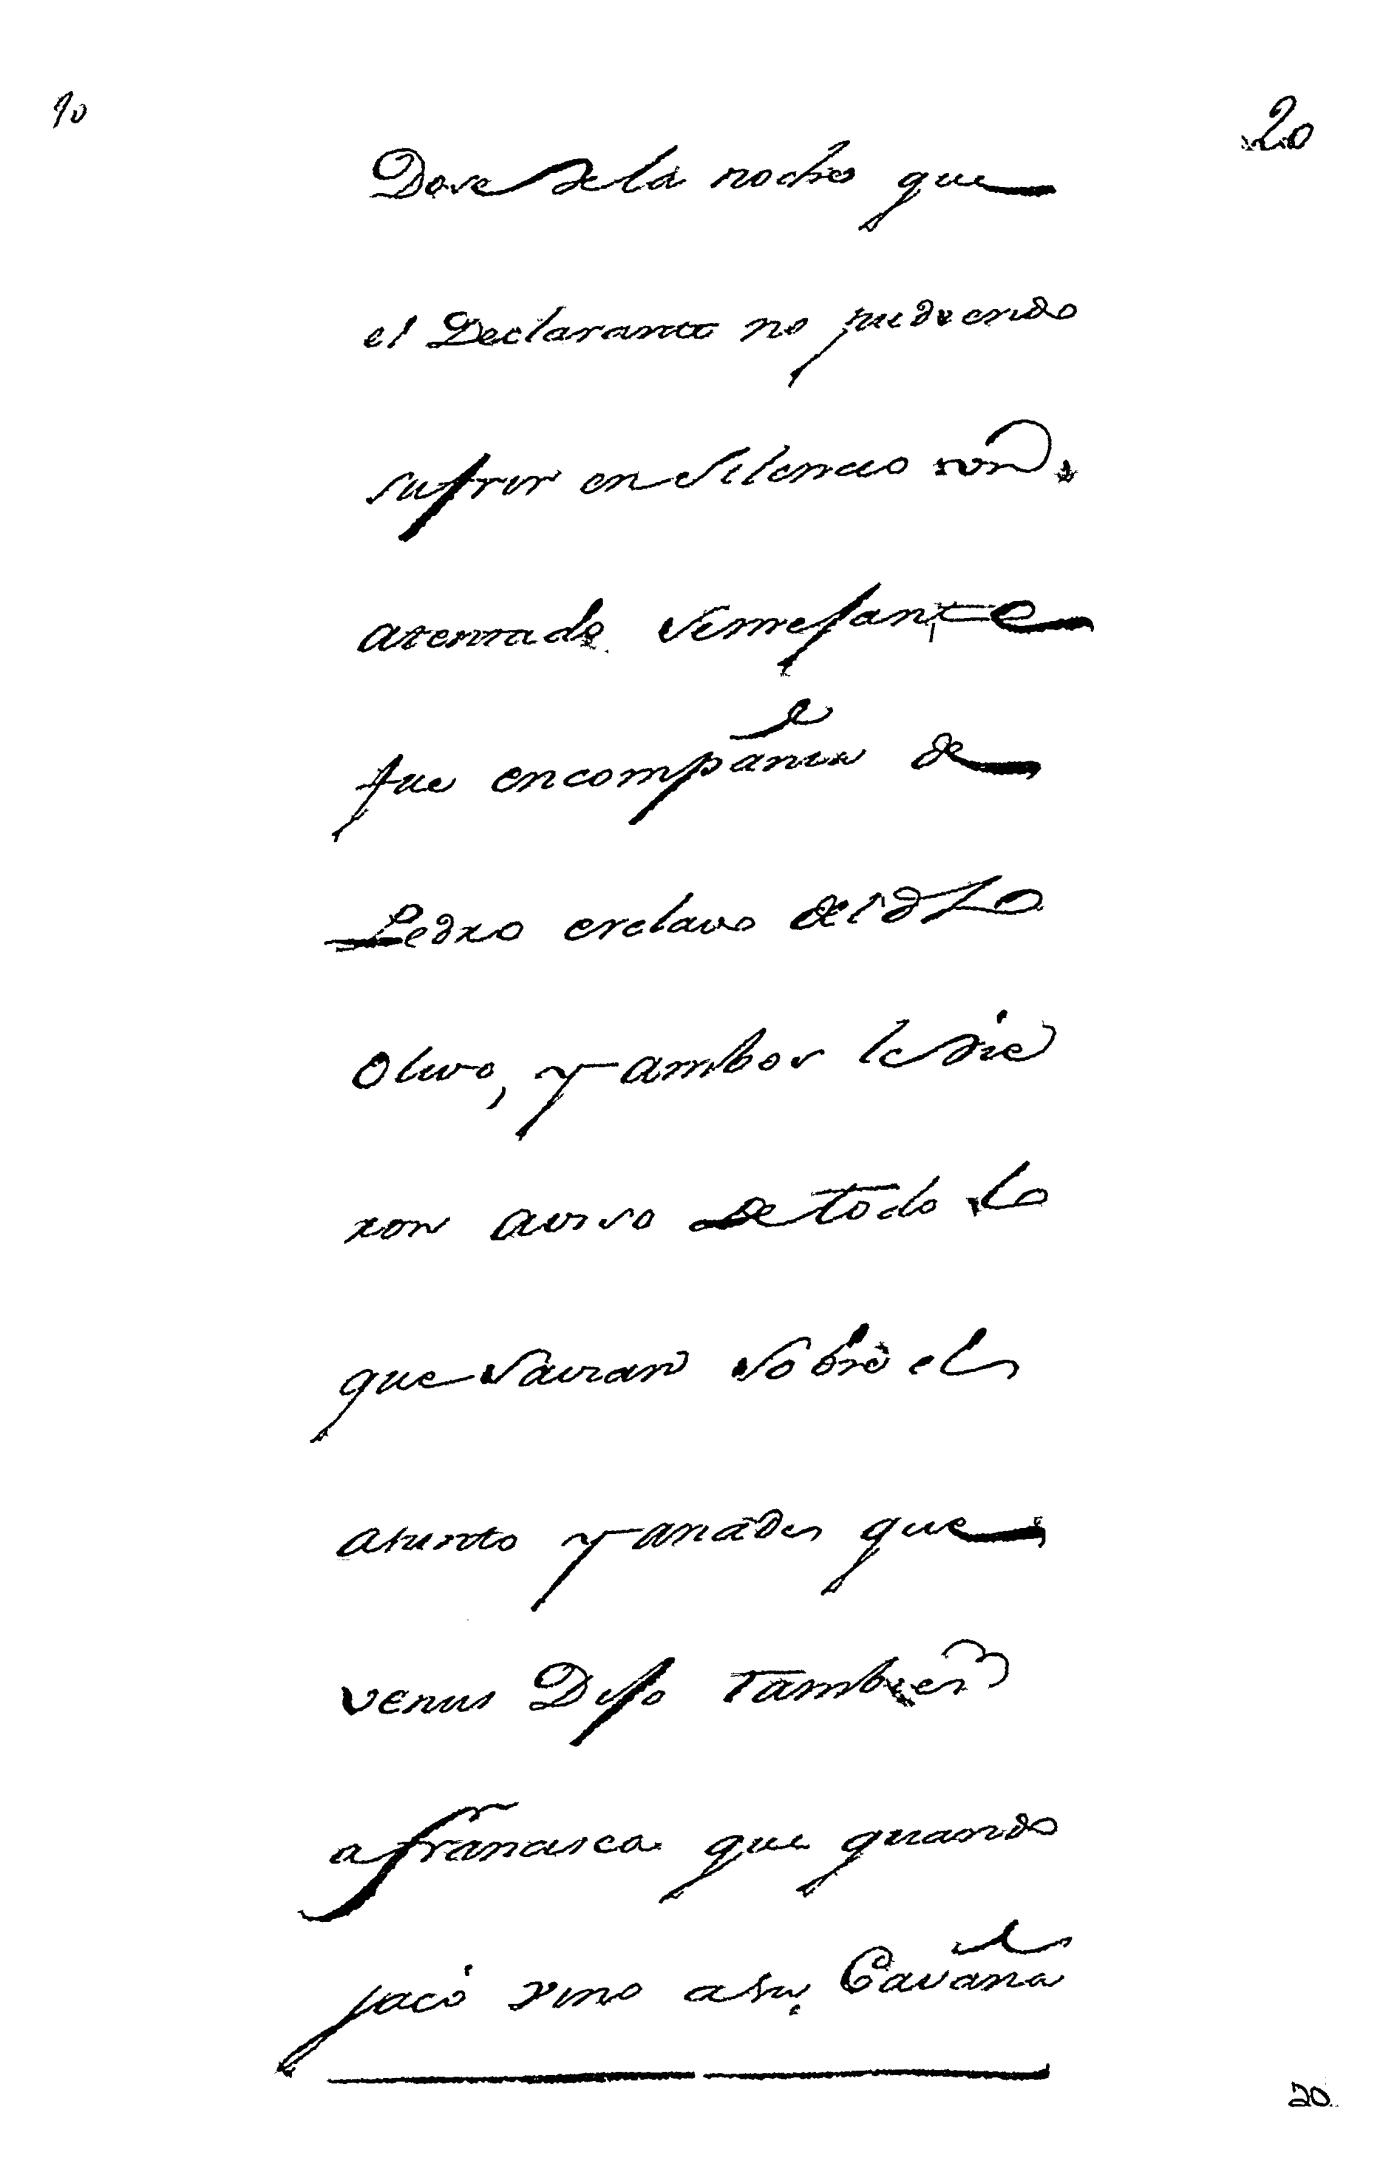 90
20
Dose de la noche que
el Declarante no pudiendo
sufrir en silencio con
atentado semejante
fue encompañia de
Pedro esclavo del d Lo
Olivo, y ambos le die
ron aviso de todo lo
que savian sobre el
asunto y anade que
venus Dijo tambien
a francisca que quando
jacó vino a su Cavaña
20